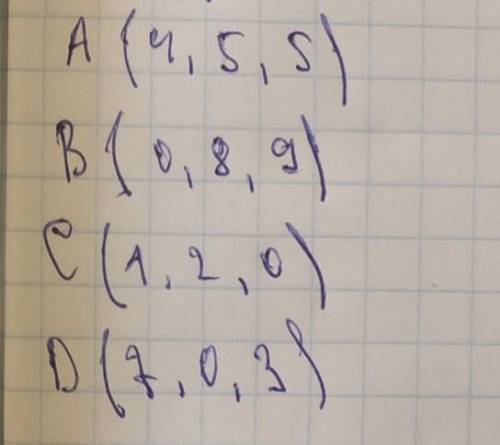 A (4, 5, 5)
B (0, 8, 9)
C (1, 2, 0)
D (7, 0, 3)